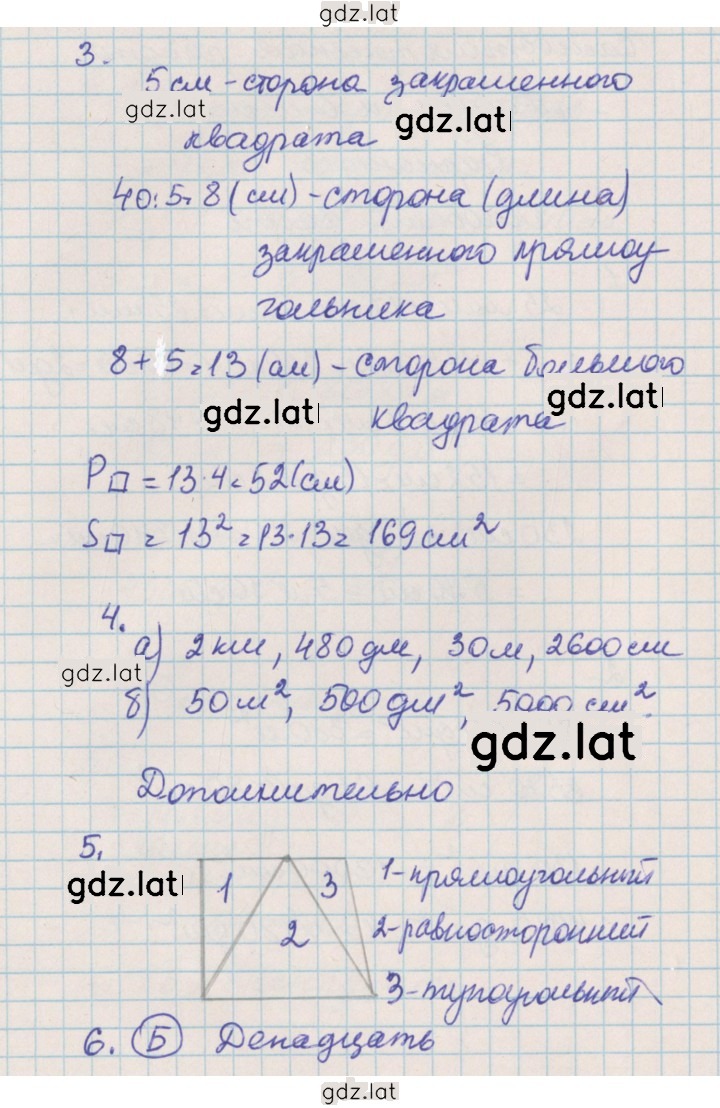 gdz.lat
3.
5 см - сторона закрашенного
gdz.lat
gdz.lat
квадрата
40:5=8 (см) - сторона (длина)
закрашенного прямоу
гольника
8+5=13 (см) - сторона большого
gdz.lat
gdz.lat
квадрата
P□ = 13·4=52(см)
S□ = 13² = 13·13 = 169 см²
4.
а) 2 км, 480 дм, 30 м, 2600 см
gdz.lat
б) 50 м², 500 дм², 5000 см²
gdz.lat
Дополнительно
5.
gdz.lat
1 3
2
1-прямоугольный
2-равносторонний
3-тупоугольный
6. Б Денадцать
gdz.lat